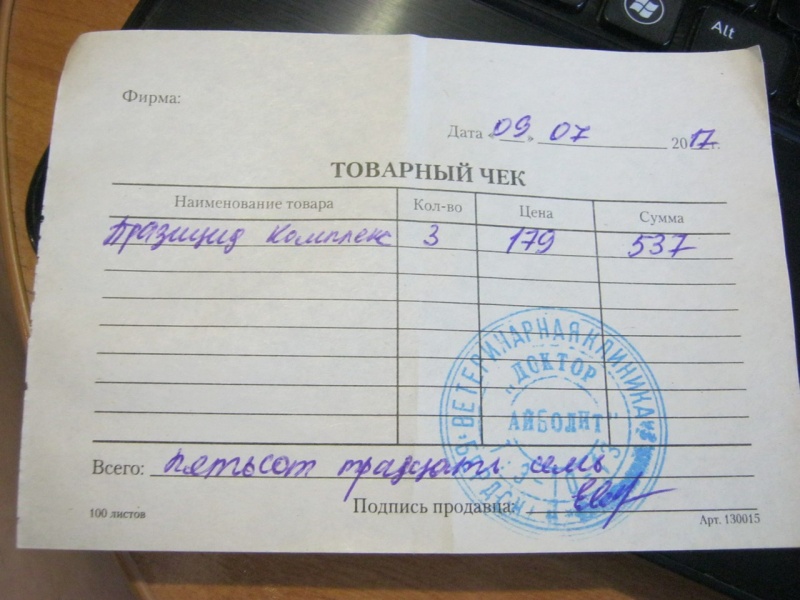 Alt
Фирма:
Дата «09» 07 2017г.
ТОВАРНЫЙ ЧЕК
Наименование товара Кол-во Цена Сумма
Празицид комплекс 3 179 537
ВЕТЕРИНАРНАЯ КЛИНИКА
"ДОКТОР
АЙБОЛИТ"
Всего: пятьсот тридцать семь
Подпись продавца:
100 листов
Арт. 130015